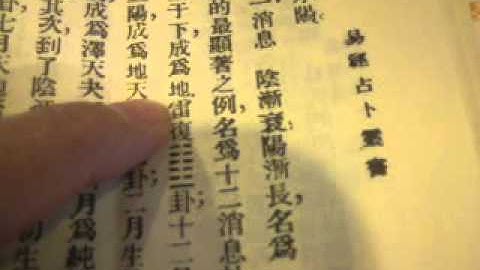 易經占卜靈書
陽。
消息 陰漸衰陽漸長,名爲
的最顯著之例,名爲十二消息
于下成爲地雷復䷗卦十二
陽成爲地天 卦二月生
成爲澤天夬 月爲純
次到了陰
卦七月天地